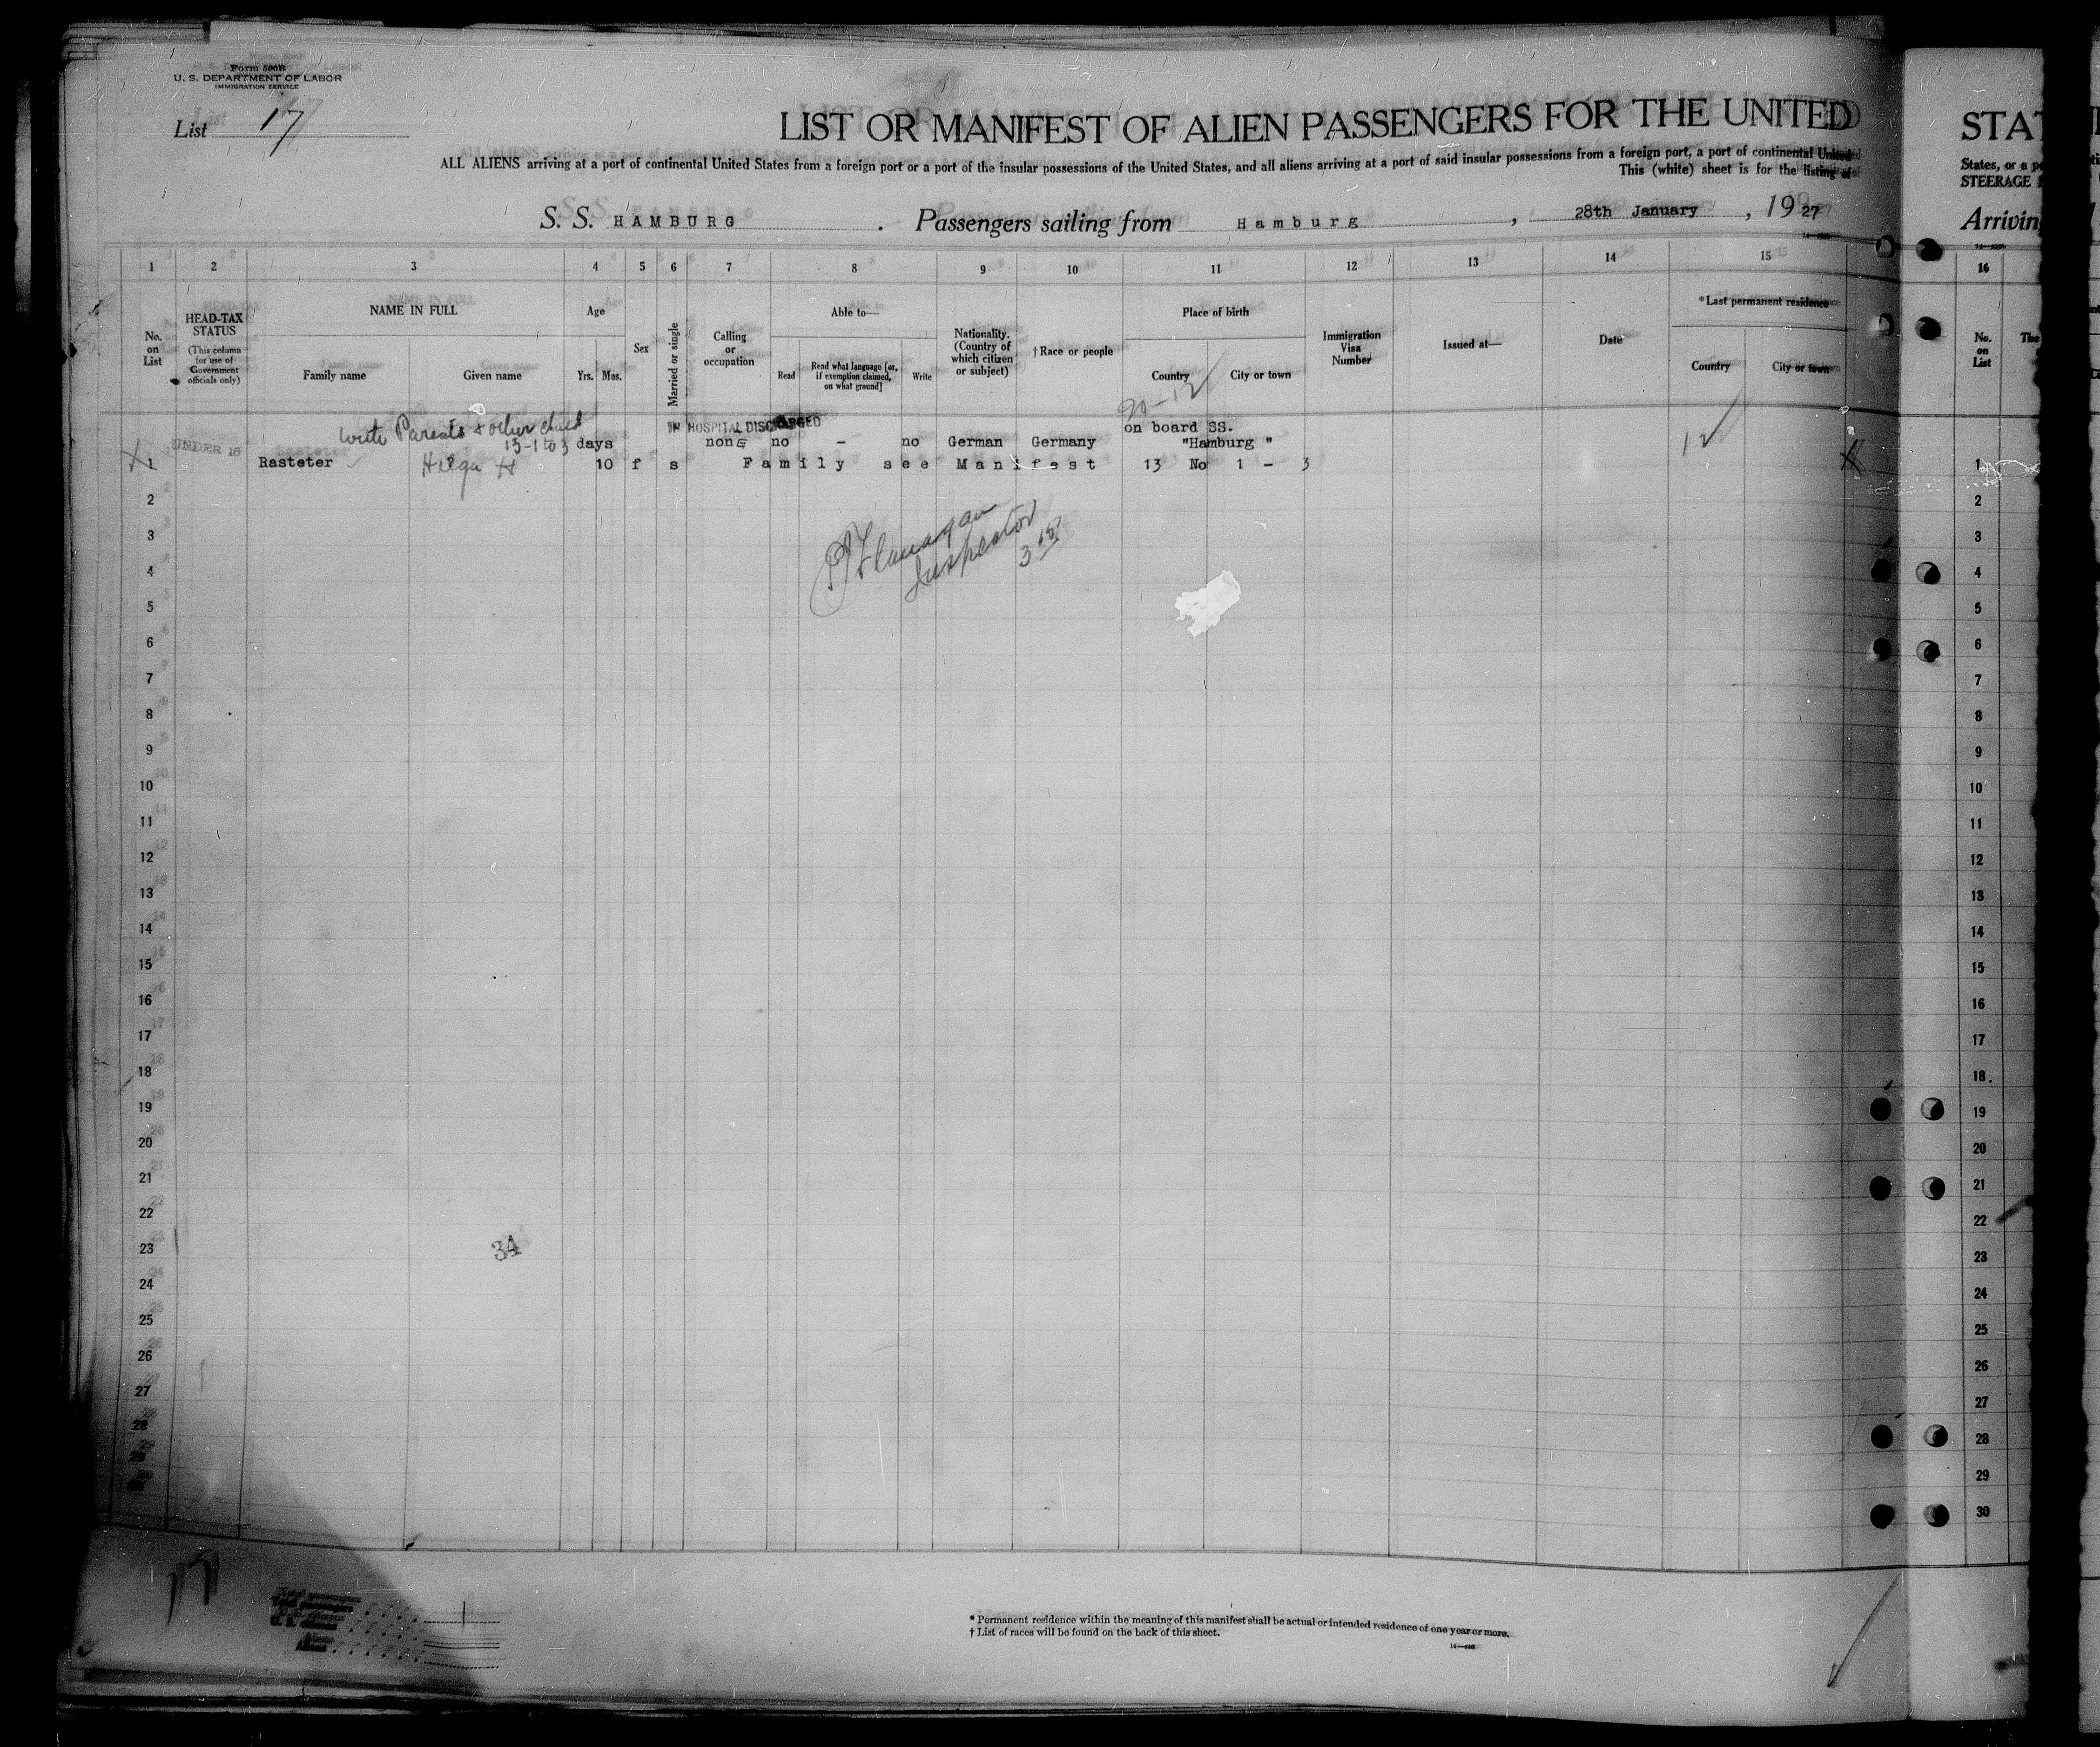 Form 500B
U. S. DEPARTMENT OF LABOR
IMMIGRATION SERVICE
List 17
LIST OR MANIFEST OF ALIEN PASSENGERS FOR THE UNITED
ALL ALIENS arriving at a port of continental United States from a foreign port or a port of the insular possessions of the United States, and all aliens arriving at a port of said insular possessions from a foreign port, a port of continental United
This (white) sheet is for the listing of
S. S. HAMBURG . Passengers sailing from Hamburg , 28th January , 1927
1 2 3 4 5 6 7 8 9 10 11 12 13 14 15
No. on List
HEAD-TAX STATUS
(This column for use of Government officials only)
NAME IN FULL
Family name Given name
Age
Yrs. Mos.
Sex
Married or single
Calling or occupation
Able to—
Read
Read what language [or, if exemption claimed, on what ground]
Write
Nationality. (Country of which citizen or subject)
†Race or people
Place of birth
Country City or town
Immigration Visa Number
Issued at—
Date
*Last permanent residence
Country City or town
90-12
with Parents + other child
IN HOSPITAL DISCHARGED
on board SS.
UNDER 16 13-1 to 3 days none no - no German Germany "Hamburg "
12
1 Rasteter Helga H 10 f s Family see Manifest 13 No 1 - 3
2
3
4
5
6
7
8
9
10
11
12
13
14
15
16
17
18
19
20
21
22
23
24
25
26
27
28
29
Flanagan
Inspector
34
17
Total passengers
U. S. citizens
Aliens
1
* Permanent residence within the meaning of this manifest shall be actual or intended residence of one year or more.
† List of races will be found on the back of this sheet.
STAT
States, or a po
STEERAGE
Arrivin
16
No. on List
The
1
2
3
4
5
6
7
8
9
10
11
12
13
14
15
16
17
18
19
20
21
22
23
24
25
26
27
28
29
30